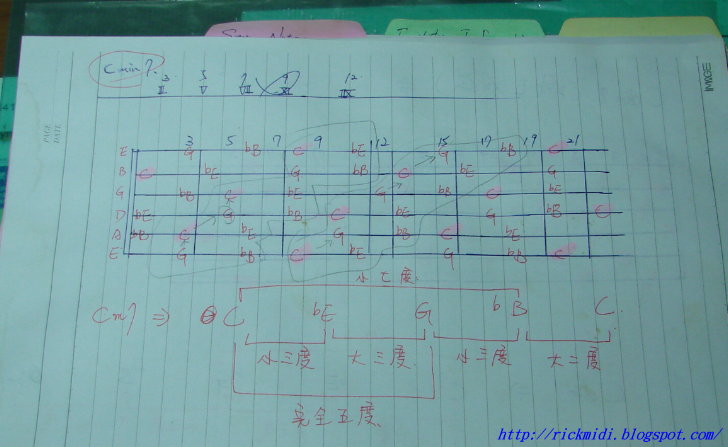 IMAGE
PAGE
DATE
Cmin7.
3 5 7 9 12
III V VII IX XII
3 5 7 9 12 15 17 19 21
E G bB C bE G bB C
B C bE G bB C bE G
G bB C bE G bB C bE
D bE G bB C bE G bB C
A bB C bE G bB C bE
E G bB C bE G bB C
小七度
Cm7 ⇒ C bE G bB C
小三度 大三度 小三度 大二度
完全五度
http://rickmidi.blogspot.com/